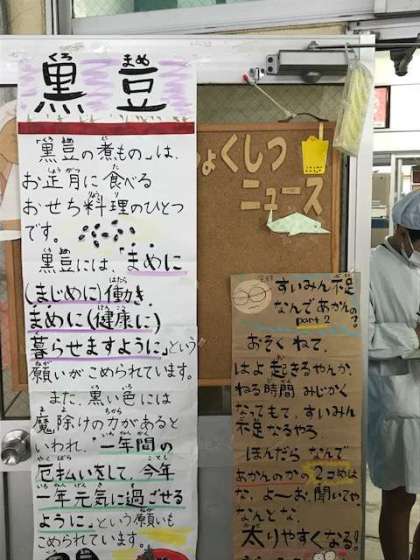 黒豆
「黒豆の煮もの」は、
お正月に食べる
おせち料理のひとつ
です。
黒豆には、「まめに
(まじめに)働き、
まめに(健康に)
暮らせますように」という
願いがこめられています。
また、黒い色には
魔除けの力があると
いわれ、"一年間の
厄払いをして、今年
一年元気に過ごせる
ように"という願いも
こめられています。
ょくしつ
ニュース
すいみん不足
なんであかんの?
part 2
おそくねて、
はよ起きるやんか、
ねる時間みじかく
なってもて、すいみん
不足なるやろ。
ほんだらなんで
あかんのかの2コめは
な、よ〜お聞いてや、
なんとな、
太りやすくなる!